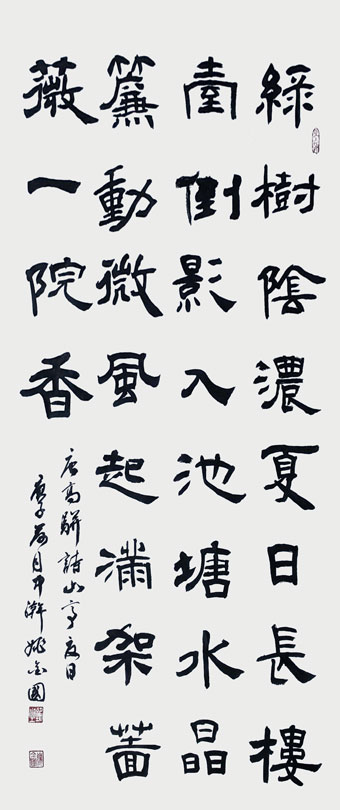 綠樹陰濃夏日長樓
臺倒影入池塘水晶
簾動微風起滿架薔
薇一院香
唐高駢詩山亭夏日
庚子荷月中澣姚金國